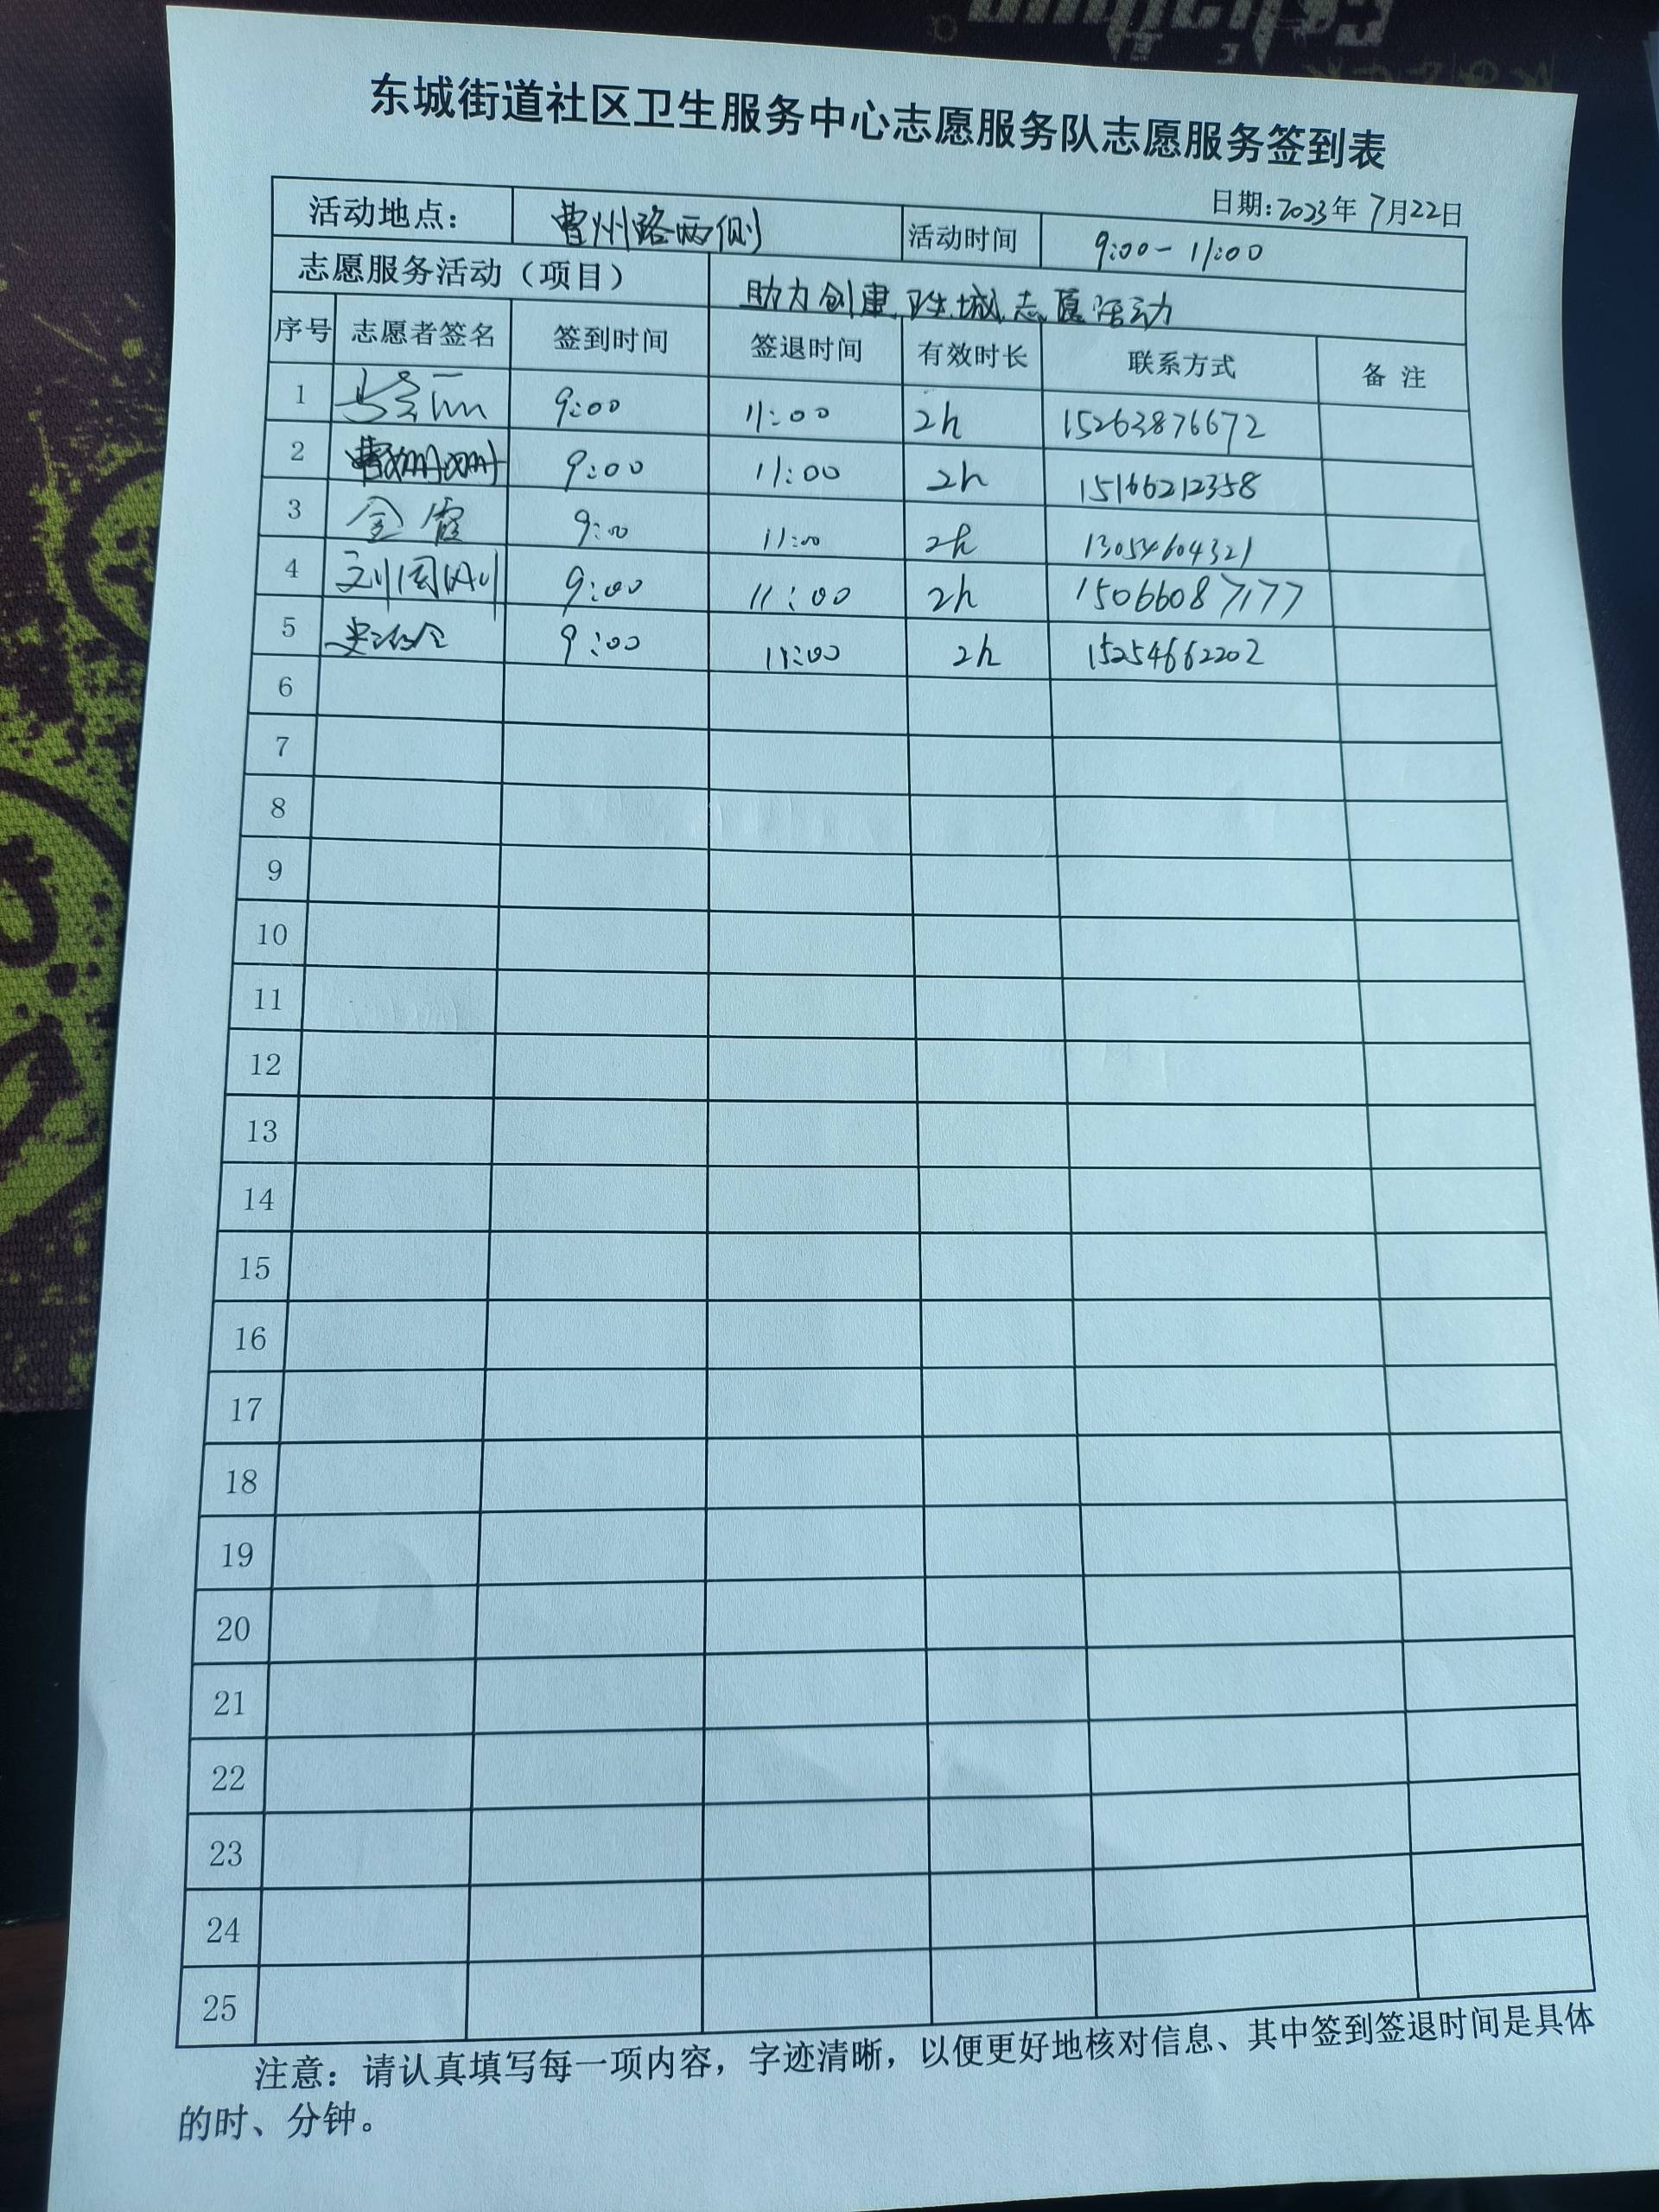 东城街道社区卫生服务中心志愿服务队志愿服务签到表
日期:2023年 7月22日
活动地点: 曹州路两侧 活动时间 9:00-11:00
志愿服务活动（项目） 助力创建卫生城志愿活动
序号 志愿者签名 签到时间 签退时间 有效时长 联系方式 备注
1 9:00 11:00 2h 15263876672
2 9:00 11:00 2h 15166212358
3 金霞 9:00 11:00 2h 13054604321
4 刘国 9:00 11:00 2h 15066087177
5 9:00 11:00 2h 15254662202
6
7
8
9
10
11
12
13
14
15
16
17
18
19
20
21
22
23
24
25
注意：请认真填写每一项内容，字迹清晰，以便更好地核对信息、其中签到签退时间是具体
的时、分钟。